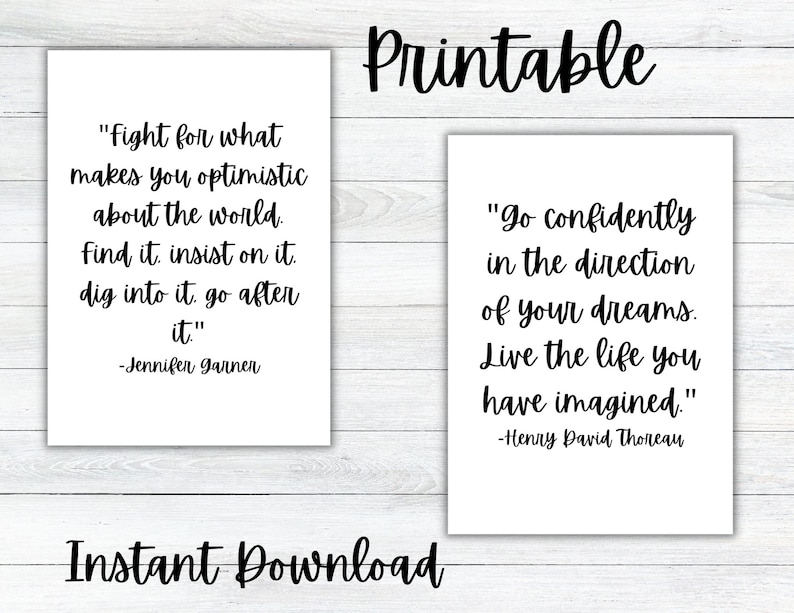 Printable
"Fight for what
makes you optimistic
about the world.
Find it, insist on it,
dig into it, go after
it."
-Jennifer Garner
"Go confidently
in the direction
of your dreams.
Live the life you
have imagined."
-Henry David Thoreau
Instant Download